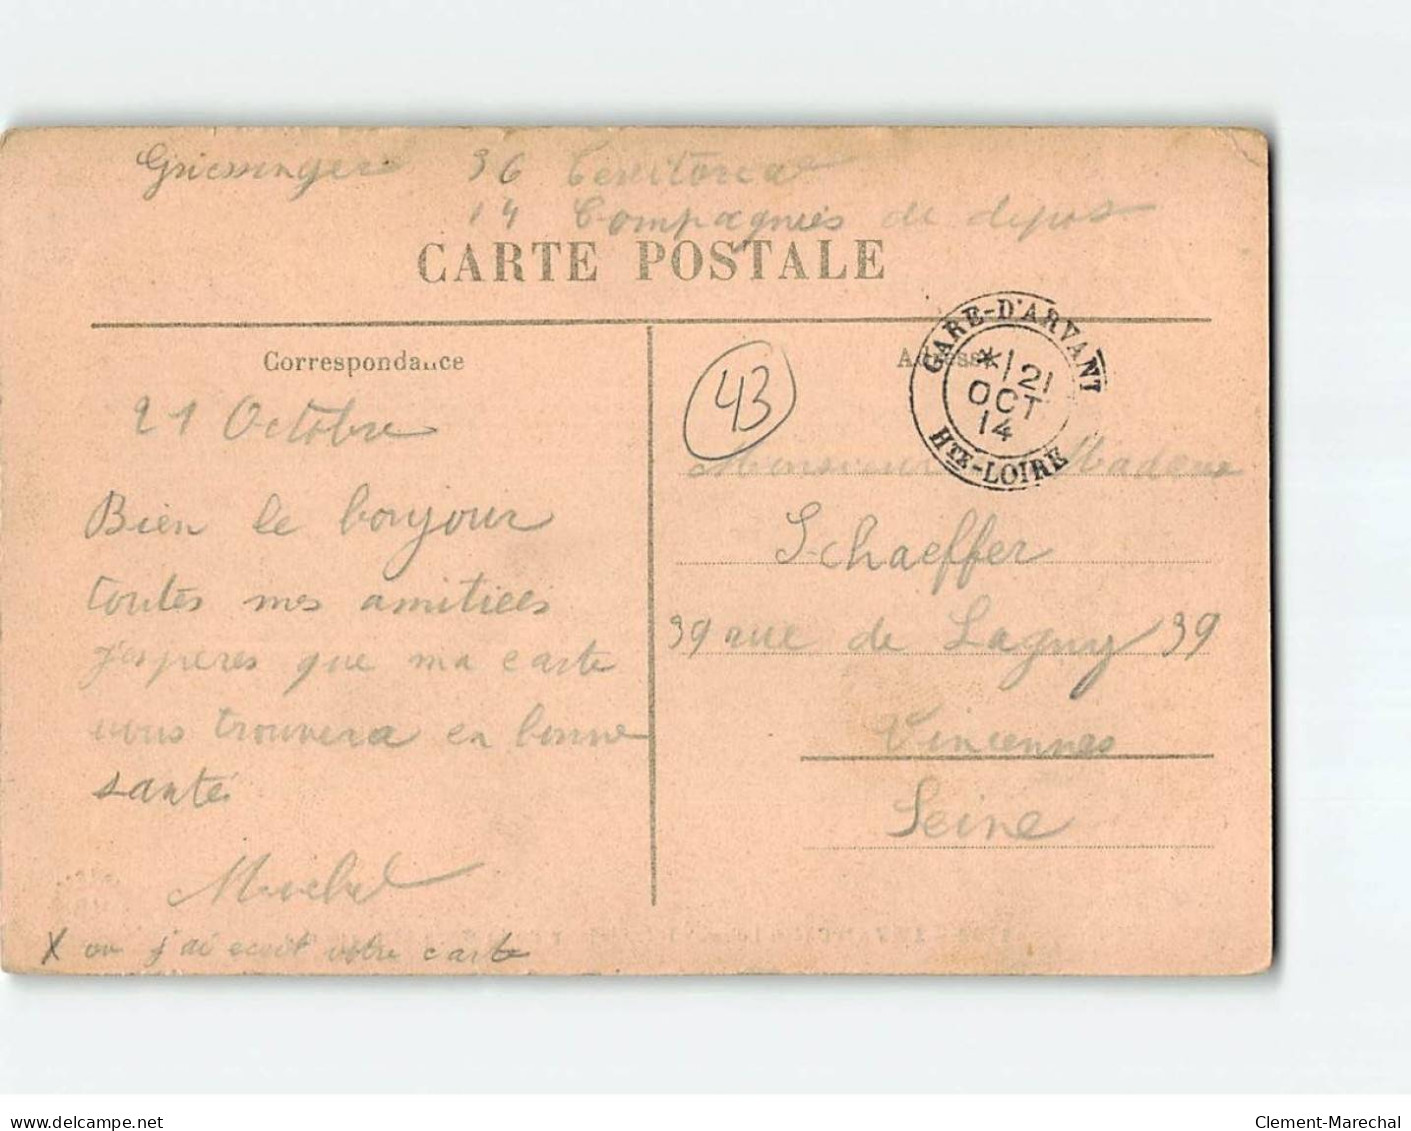 Griessinger 36 Territorea
14 Compagnies de depos
CARTE POSTALE
Correspondance
Adresse
GARE-D'ARVANT
* 21
OCT
14
HTE-LOIRE
43
21 Octobre
Bien le bonjour
toutes mes amitiees
j'esperes que ma carte
vous trouvera en bonne
santé
Michel
X ou j'ai ecrit votre carte
Monsieur Madame
Schaeffer
39 rue de Lagny 39
Vincennes
Seine
delcampe.net
Clement-Marechal